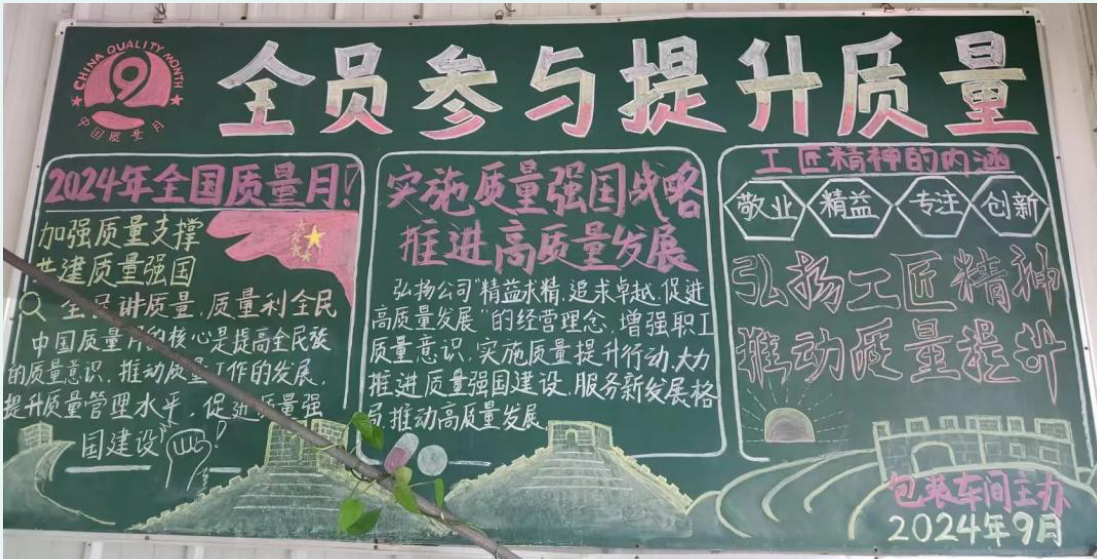 CHINA QUALITY MONTH
9
中国质量月
全员参与提升质量
2024年全国质量月!
加强质量支撑
共建质量强国
全员讲质量,质量利全民
中国质量月的核心是提高全民族
的质量意识,推动质量工作的发展,
提升质量管理水平,促进质量强
国建设!
实施质量强国战略
推进高质量发展
弘扬公司"精益求精,追求卓越,促进
高质量发展"的经营理念,增强职工
质量意识,实施质量提升行动,大力
推进质量强国建设,服务新发展格
局,推动高质量发展
工匠精神的内涵
敬业 精益 专注 创新
弘扬工匠精神
推动质量提升
包装车间主办
2024年9月